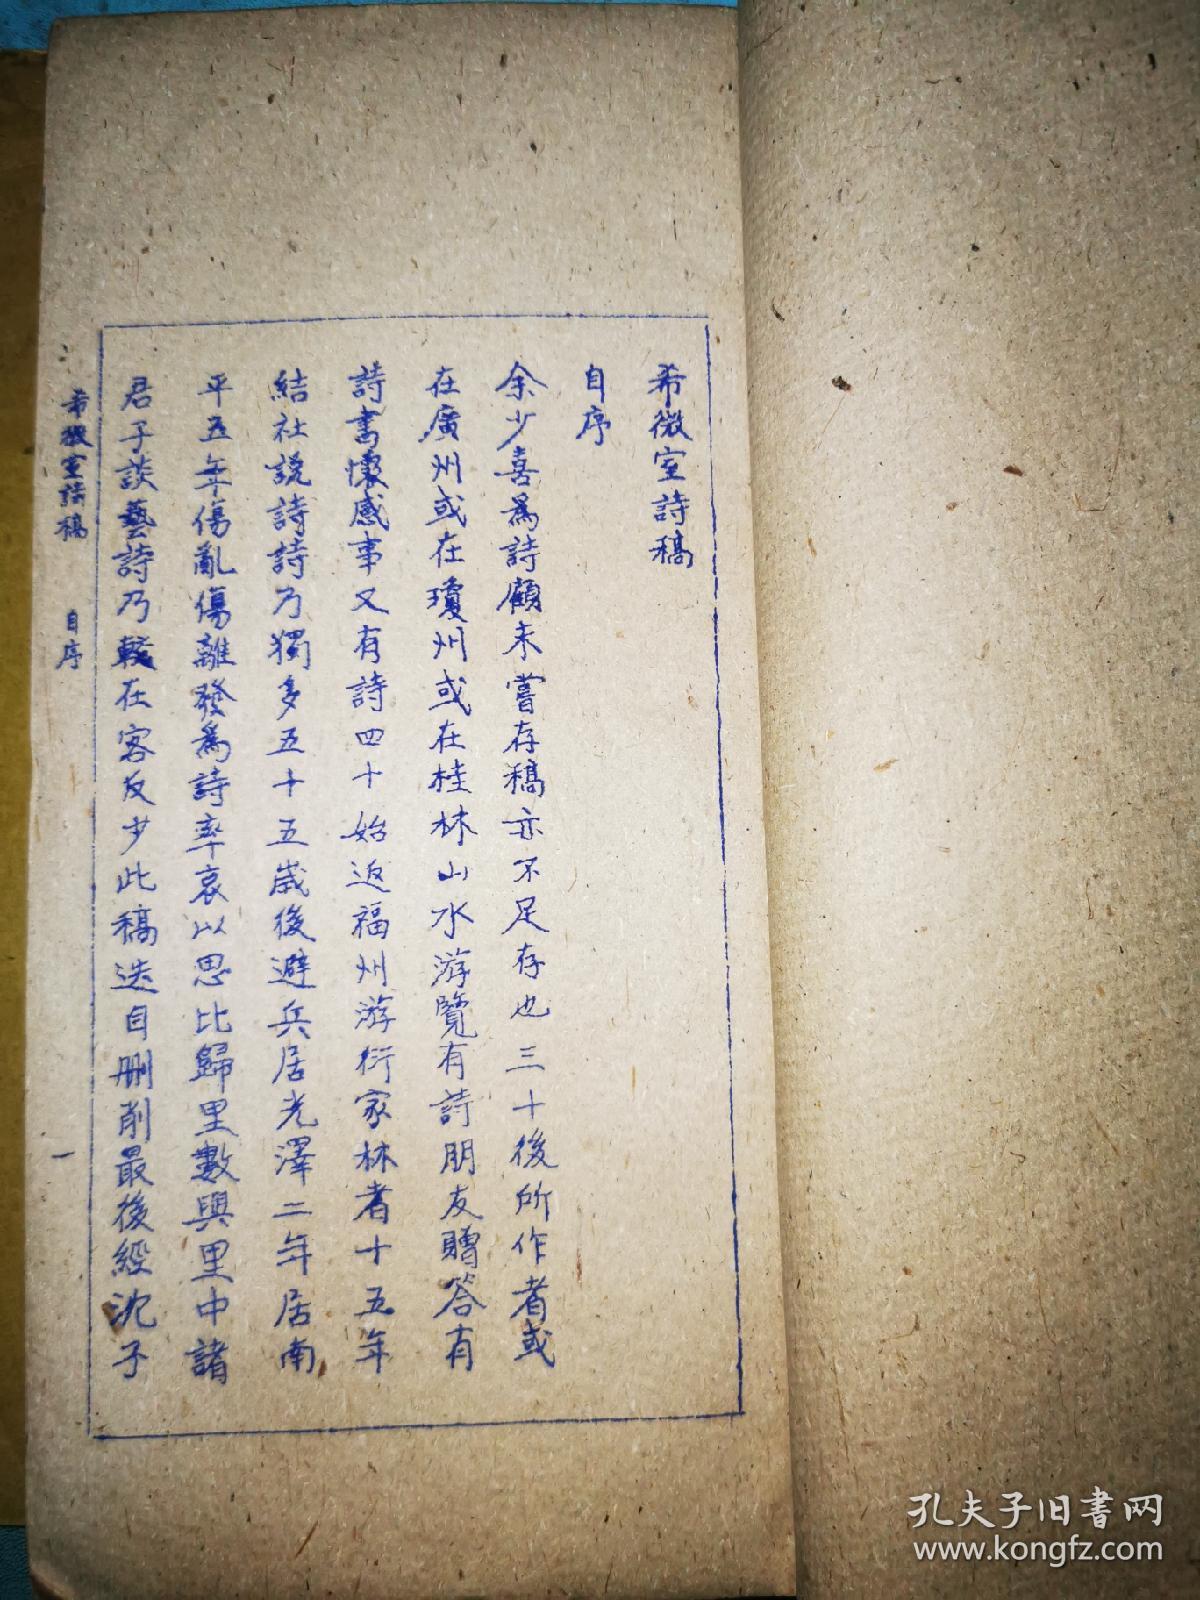 希微室詩稿
自序
余少喜為詩顧未嘗存稿亦不足存也三十後所作者或
在廣州或在瓊州或在桂林山水游覽有詩朋友贈答有
詩書懷感事又有詩四十始返福州游衍家林者十五年
結社說詩詩乃獨多五十五歲後避兵居光澤二年居南
平五年傷亂傷離發為詩率哀以思比歸里數與里中諸
君子談藝詩乃較在客反少此稿迭自刪削最後經沈子
希微室詩稿 自序 一
孔夫子旧書网
www.kongfz.com